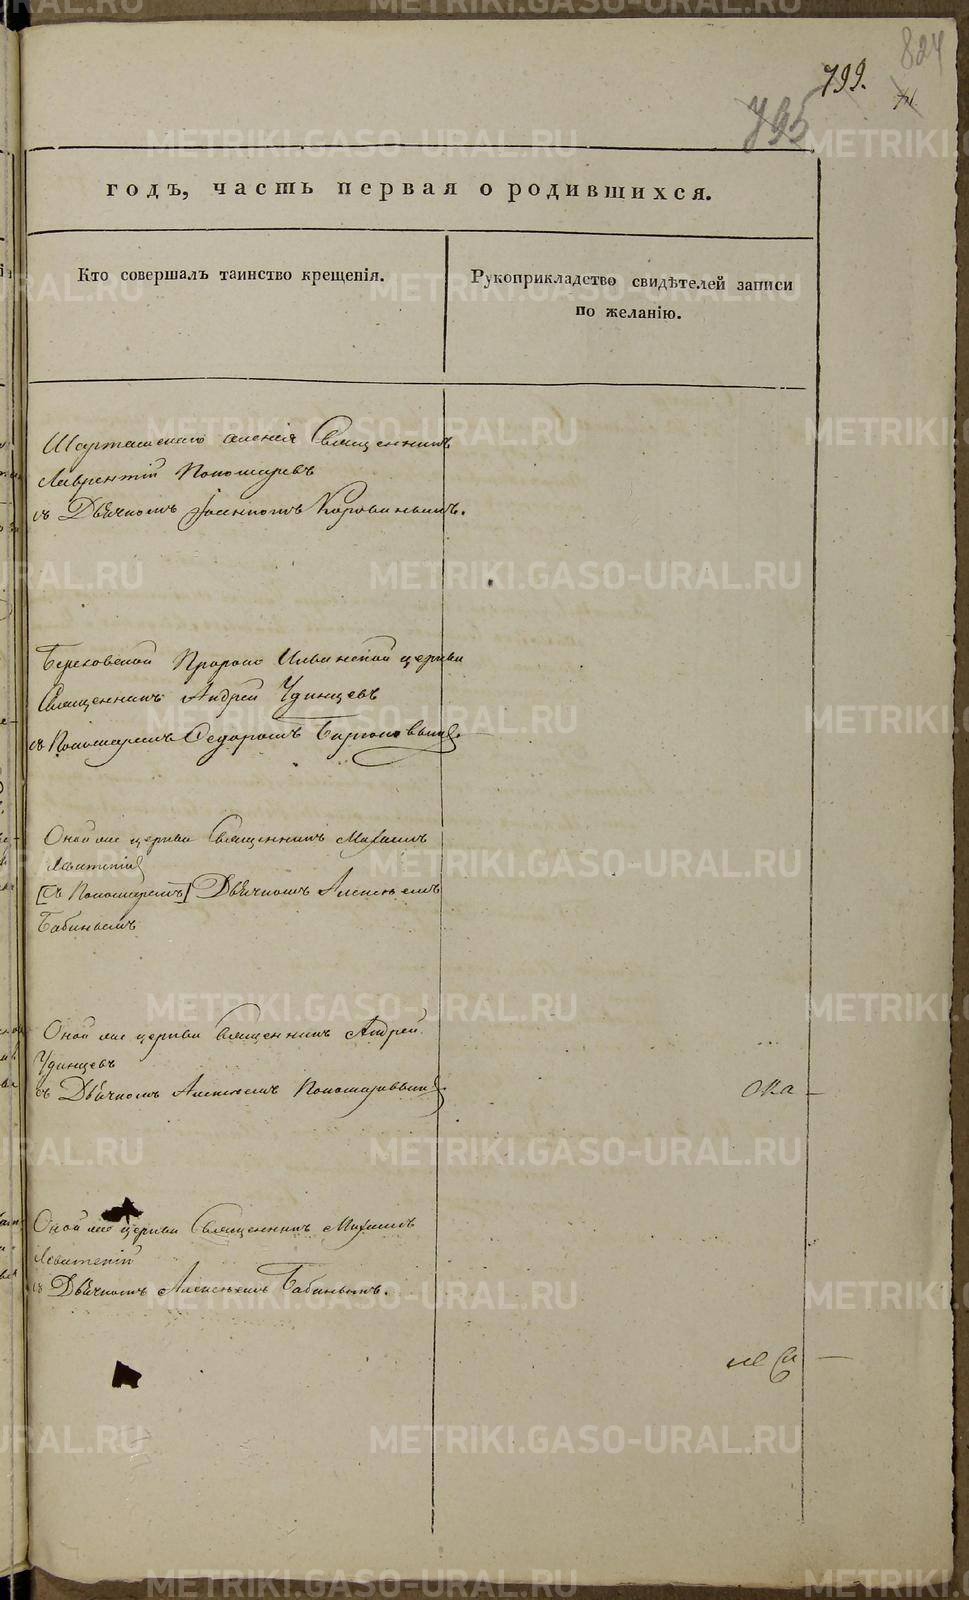 824
799.
795
годъ, часть первая о родившихся.
Кто совершалъ таинство крещенія.
Рукоприкладство свидѣтелей записи
по желанію.
Шарташскаго селенія Священникъ
Лаврентій Пономаревъ
съ Дьячкомъ Іосифомъ Коровинымъ.
Березовской Пророко Ильинской церкви
Священникъ Андрей Удинцевъ
съ Пономаремъ Ѳедоромъ
Оной же церкви Священникъ Михаилъ
Левитскій
[съ Пономаремъ] Дьячкомъ Алексѣемъ
Бабинымъ
Оной же церкви Священникъ Андрей
Удинцевъ
съ Дьячкомъ Алексѣемъ Пономаревымъ
Оной же церкви Священникъ Михаилъ
Левитскій
съ Дьячкомъ Алексѣемъ Бабинымъ.
METRIKI.GASO-URAL.RU